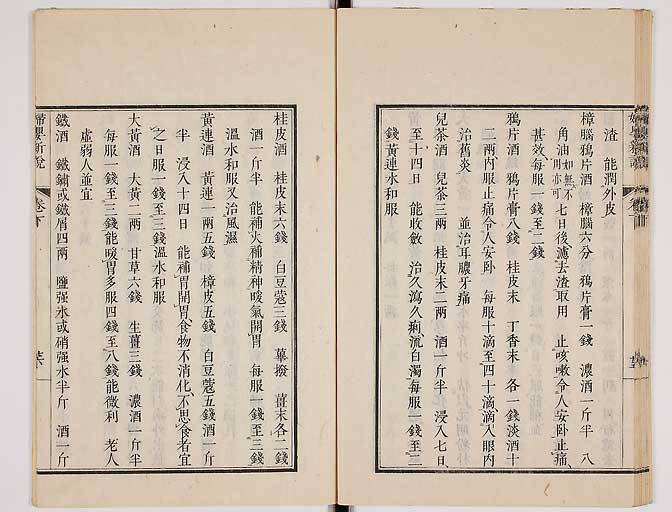 渣　能潤外皮
樟腦鴉片酒　樟腦六分　鴉片膏一錢　濃酒一斤半　八
角油如無不用亦可　七日後濾去渣取用　止咳嗽令人安卧止痛
甚效每服一錢至二錢
鴉片酒　鴉片膏八錢　桂皮末　丁香末　各一錢淡酒十
二兩内服止痛令人安卧　每服十滴至四十滴滴入眼内
治舊炎　並治耳膿牙痛
兒茶酒　兒茶三兩　桂皮末二兩　酒一斤半　浸入七日
至十四日　能收斂　治久瀉久痢流白濁每服一錢至二
錢黃連水和服
桂皮酒　桂皮末六錢　白豆蔻三錢　蓽撥　薑末各二錢
酒一斤半　能補火補精神暖氣開胃　每服一錢至三錢
溫水和服又治風濕
黃連酒　黃連一兩五錢　樟皮五錢　白豆蔻五錢酒一斤
半　浸入十四日　能補胃開胃食物不消化不思食者宜
之日服一錢至三錢溫水和服
大黃酒　大黃二兩　甘草六錢　生薑三錢　濃酒一斤半
每服一錢至三錢能暖胃多服四錢至八錢能微利　老人
虛弱人並宜
鐵酒　鐵鏽或鐵屑四兩　鹽强水或硝强水半斤　酒一斤
婦嬰新說　卷下